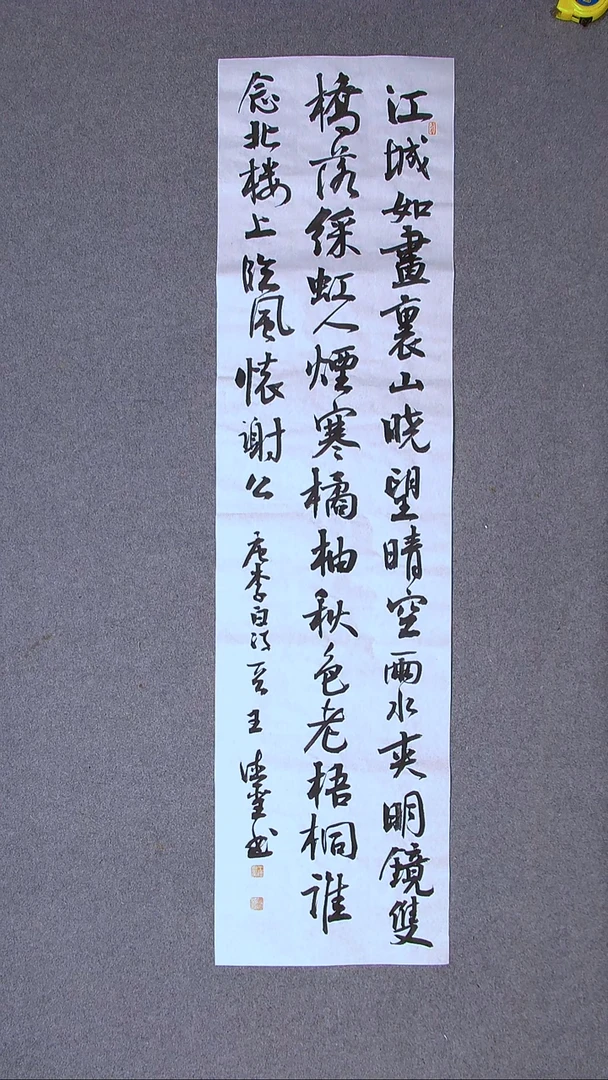 江城如畫裏山晓望晴空兩水夾明鏡雙
橋落綵虹人煙寒橘柚秋色老梧桐誰
念北楼上临風懷謝公
唐李白诗 王 书